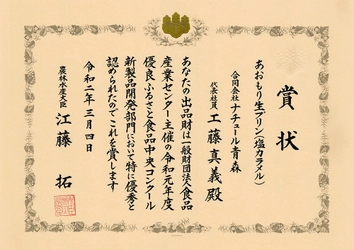 賞状
あおもり生プリン(塩カラメル)
合同会社ナチュール青森
代表社員 工藤真義殿
あなたの出品財は一般財団法人食品
産業センター主催の令和元年度
優良ふるさと食品中央コンクール
新製品開発部門において特に優秀と
認められたのでこれを賞します
令和二年三月四日
農林水産大臣 江藤拓